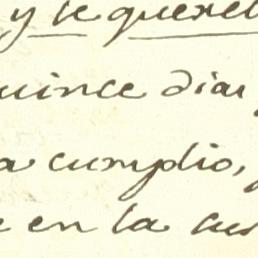 y le querel
quince dias
a cumplio,
e en la cus